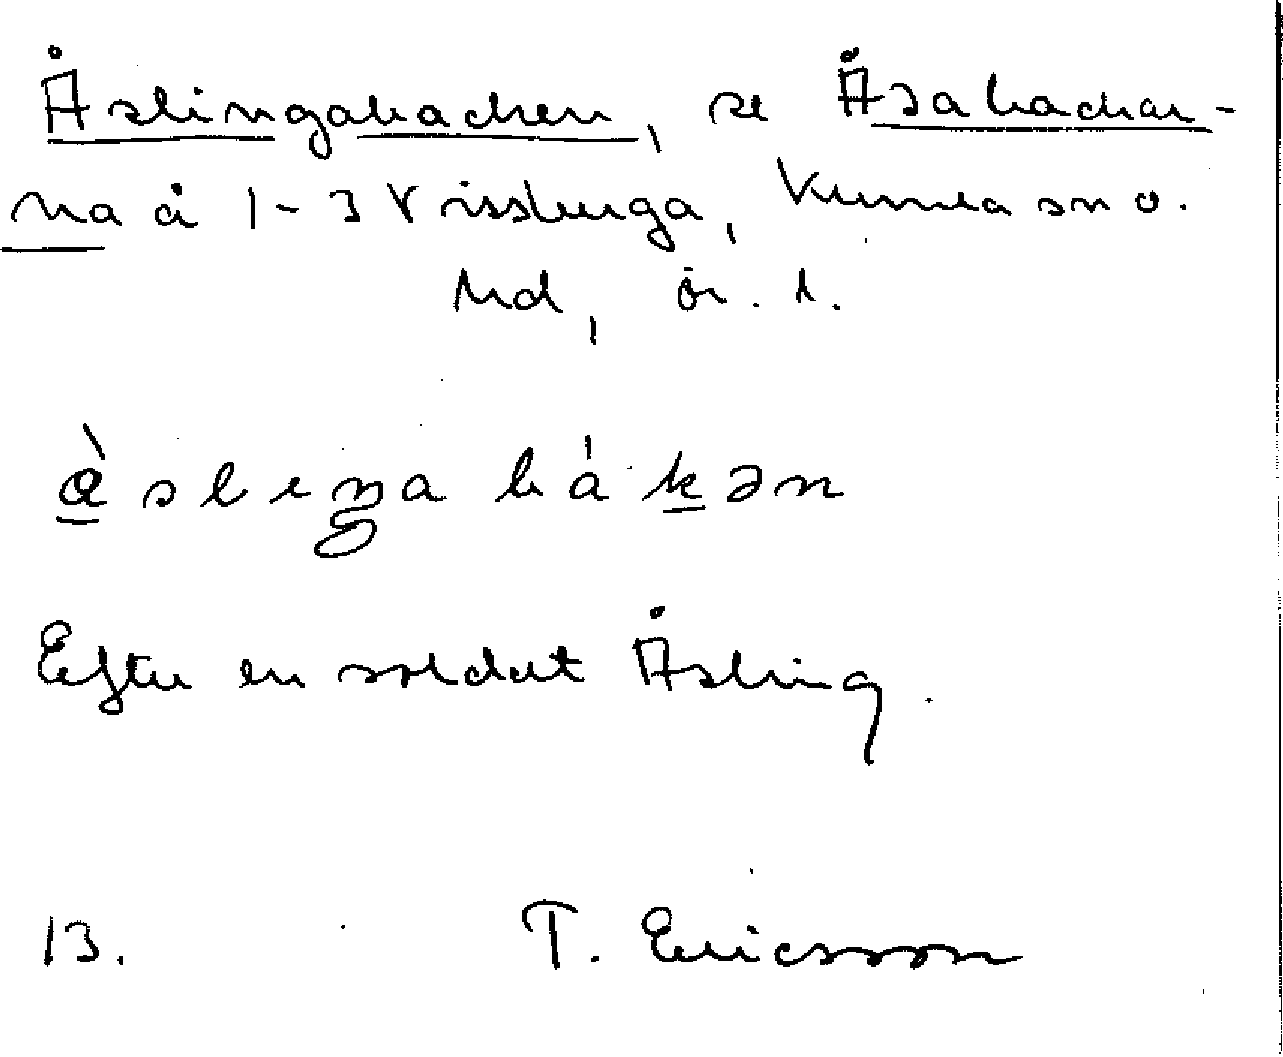 Åslingabacken, se Åsabackar-
na å 1-3 Vissberga, Kumla sn o.
hd, ör. l.
Efter en soldat Åsling.
13. T. Ericsson